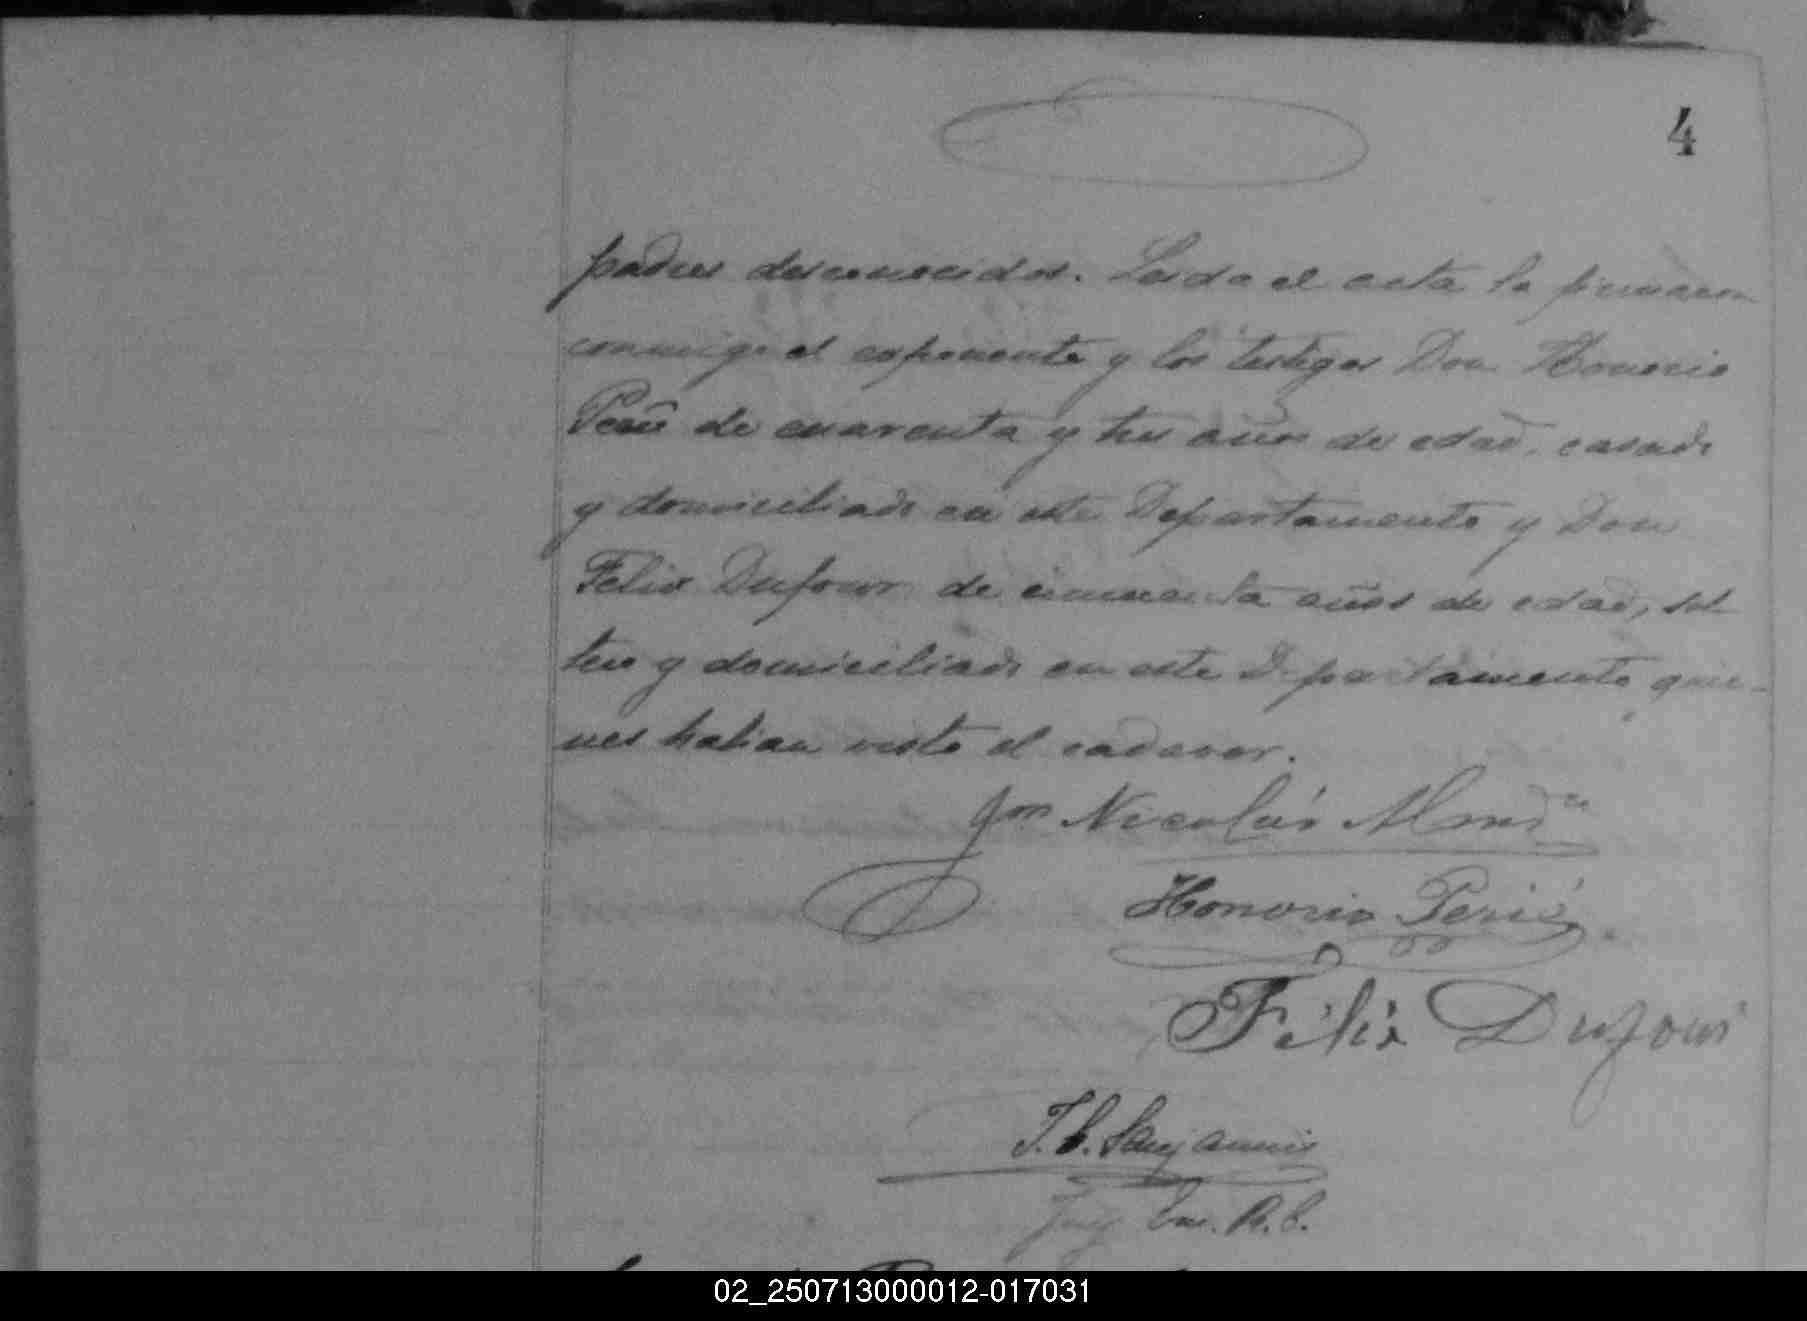 4
padres desconocidos. Leida el acta la firmaron
conmigo el exponente y los testigos Don Honorio
Perié de cuarenta y tres años de edad, casado
y domiciliado en este Departamento y Don
Felix Dufour de cincuenta años de edad, sol
tero y domiciliado en este Departamento quie-
nes habian visto el cadaver.
Nicolás
Honorio Perié
Félix Dufour
Juez Enc. R. C.
02_250713000012-017031